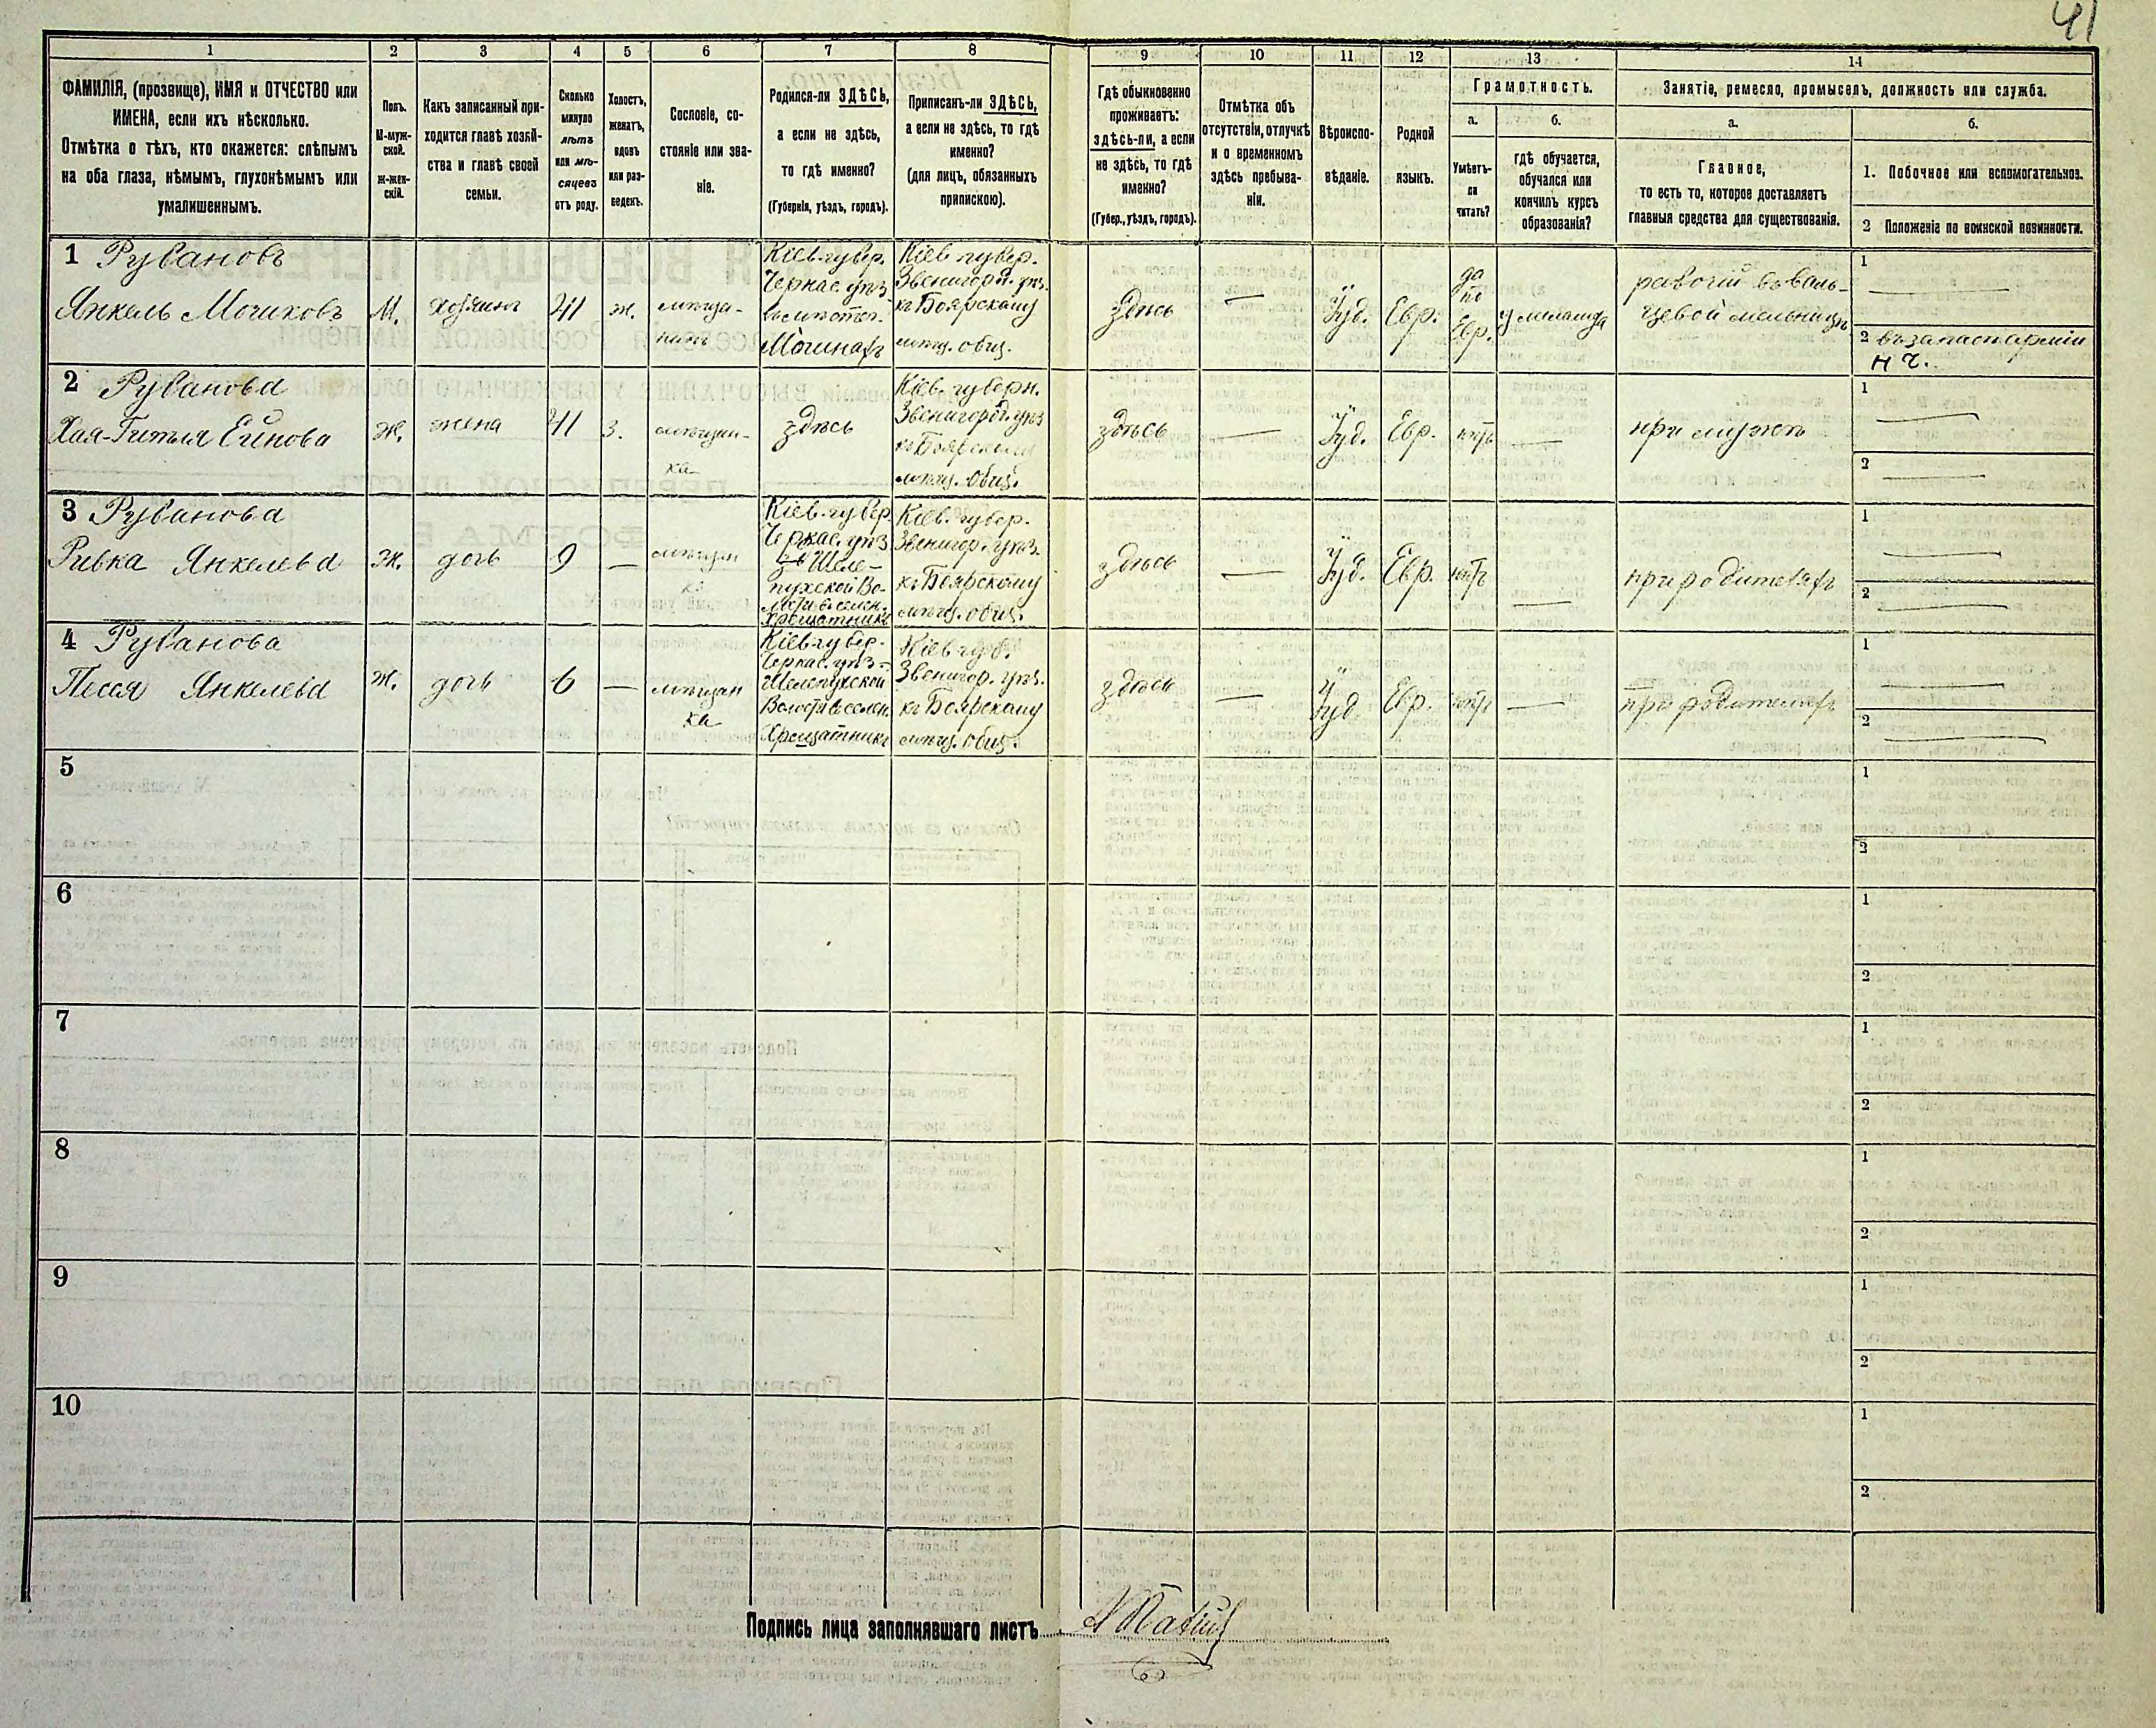 41
1
2
3
4
5
6
7
8
9
10
11
12
13
14
ФАМИЛІЯ, (прозвище), ИМЯ и ОТЧЕСТВО или
ИМЕНА, если ихъ нѣсколько.
Отмѣтка о тѣхъ, кто окажется: слѣпымъ
на оба глаза, нѣмымъ, глухонѣмымъ или
умалишеннымъ.
Полъ.
М-муж-
ской.
Ж-жен-
скій.
Какъ записанный при-
ходится главѣ хозяй-
ства и главѣ своей
семьи.
Сколько
минуло
лѣтъ
или мѣ-
сяцевъ
отъ роду.
Холостъ,
женатъ,
вдовъ
или раз-
веденъ.
Сословіе, со-
стояніе или зва-
ніе.
Родился-ли ЗДѢСЬ,
а если не здѣсь,
то гдѣ именно?
(Губернія, уѣздъ, городъ).
Приписанъ-ли ЗДѢСЬ,
а если не здѣсь, то гдѣ
именно?
(для лицъ, обязанныхъ
припискою).
Гдѣ обыкновенно
проживаетъ:
здѣсь-ли, а если
не здѣсь, то гдѣ
именно?
(Губер., уѣздъ, городъ).
Отмѣтка объ
отсутствіи, отлучкѣ
и о временномъ
здѣсь пребыва-
ніи.
Вѣроиспо-
вѣданіе.
Родной
языкъ.
Грамотность.
а.
Умѣетъ-
ли
читать?
б.
гдѣ обучается,
обучался или
кончилъ курсъ
образованія?
Занятіе, ремесло, промыселъ, должность или служба.
а.
Главное,
то есть то, которое доставляетъ
главныя средства для существованія.
б.
1. Побочное или вспомогательное.
2 Положеніе по воинской повинности.
1 Рувановъ
Янкель Мошковъ
М.
хозяинъ
41
ж.
мѣща-
нинъ
Кіев. губер.
Черкас. уѣз.
Мошнахъ
Кіев. губер.
Звенигород. уѣз.
къ Боярскому
мѣщ. общ.
здѣсь
—
Іуд.
Евр.
да
по
Евр.
у меламда
рабочій въ валь-
цевой мельницѣ
1 —
2 въ запасѣ арміи
н ч.
2 Руванова
Хая-Гитля
ж.
жена
41
з.
мѣщан-
ка
здѣсь
Кіев. губерн.
Звенигород. уѣз.
къ Боярскому
мѣщ. общ.
здѣсь
—
Іуд.
Евр.
нѣтъ
—
при мужѣ
1 —
2 —
3 Руванова
Ривка Янкелева
ж.
дочь
9
—
мѣщан
ка
Кіев. губер.
Черкас. уѣз.
въ Шеле-
пухской Во-
лости в селен.
Хрещатникъ
Кіев. губер.
Звенигор. уѣз.
къ Боярскому
мѣщ. общ.
здѣсь
—
Іуд.
Евр.
нѣтъ
—
при родителяхъ
1 —
2 —
4 Руванова
Песся Янкелева
ж.
дочь
6
—
мѣщан
ка
Кіев. губер.
Черкас. уѣз.
Шелепухской
Волости в селен.
Хрещатникъ
Кіев. губ.
Звенигор. уѣз.
къ Боярскому
мѣщ. общ.
здѣсь
—
Іуд.
Евр.
нѣтъ
—
при родителяхъ
1 —
2 —
5
1
2
6
1
2
7
1
2
8
1
2
9
1
2
10
1
2
Подпись лица заполнявшаго листъ